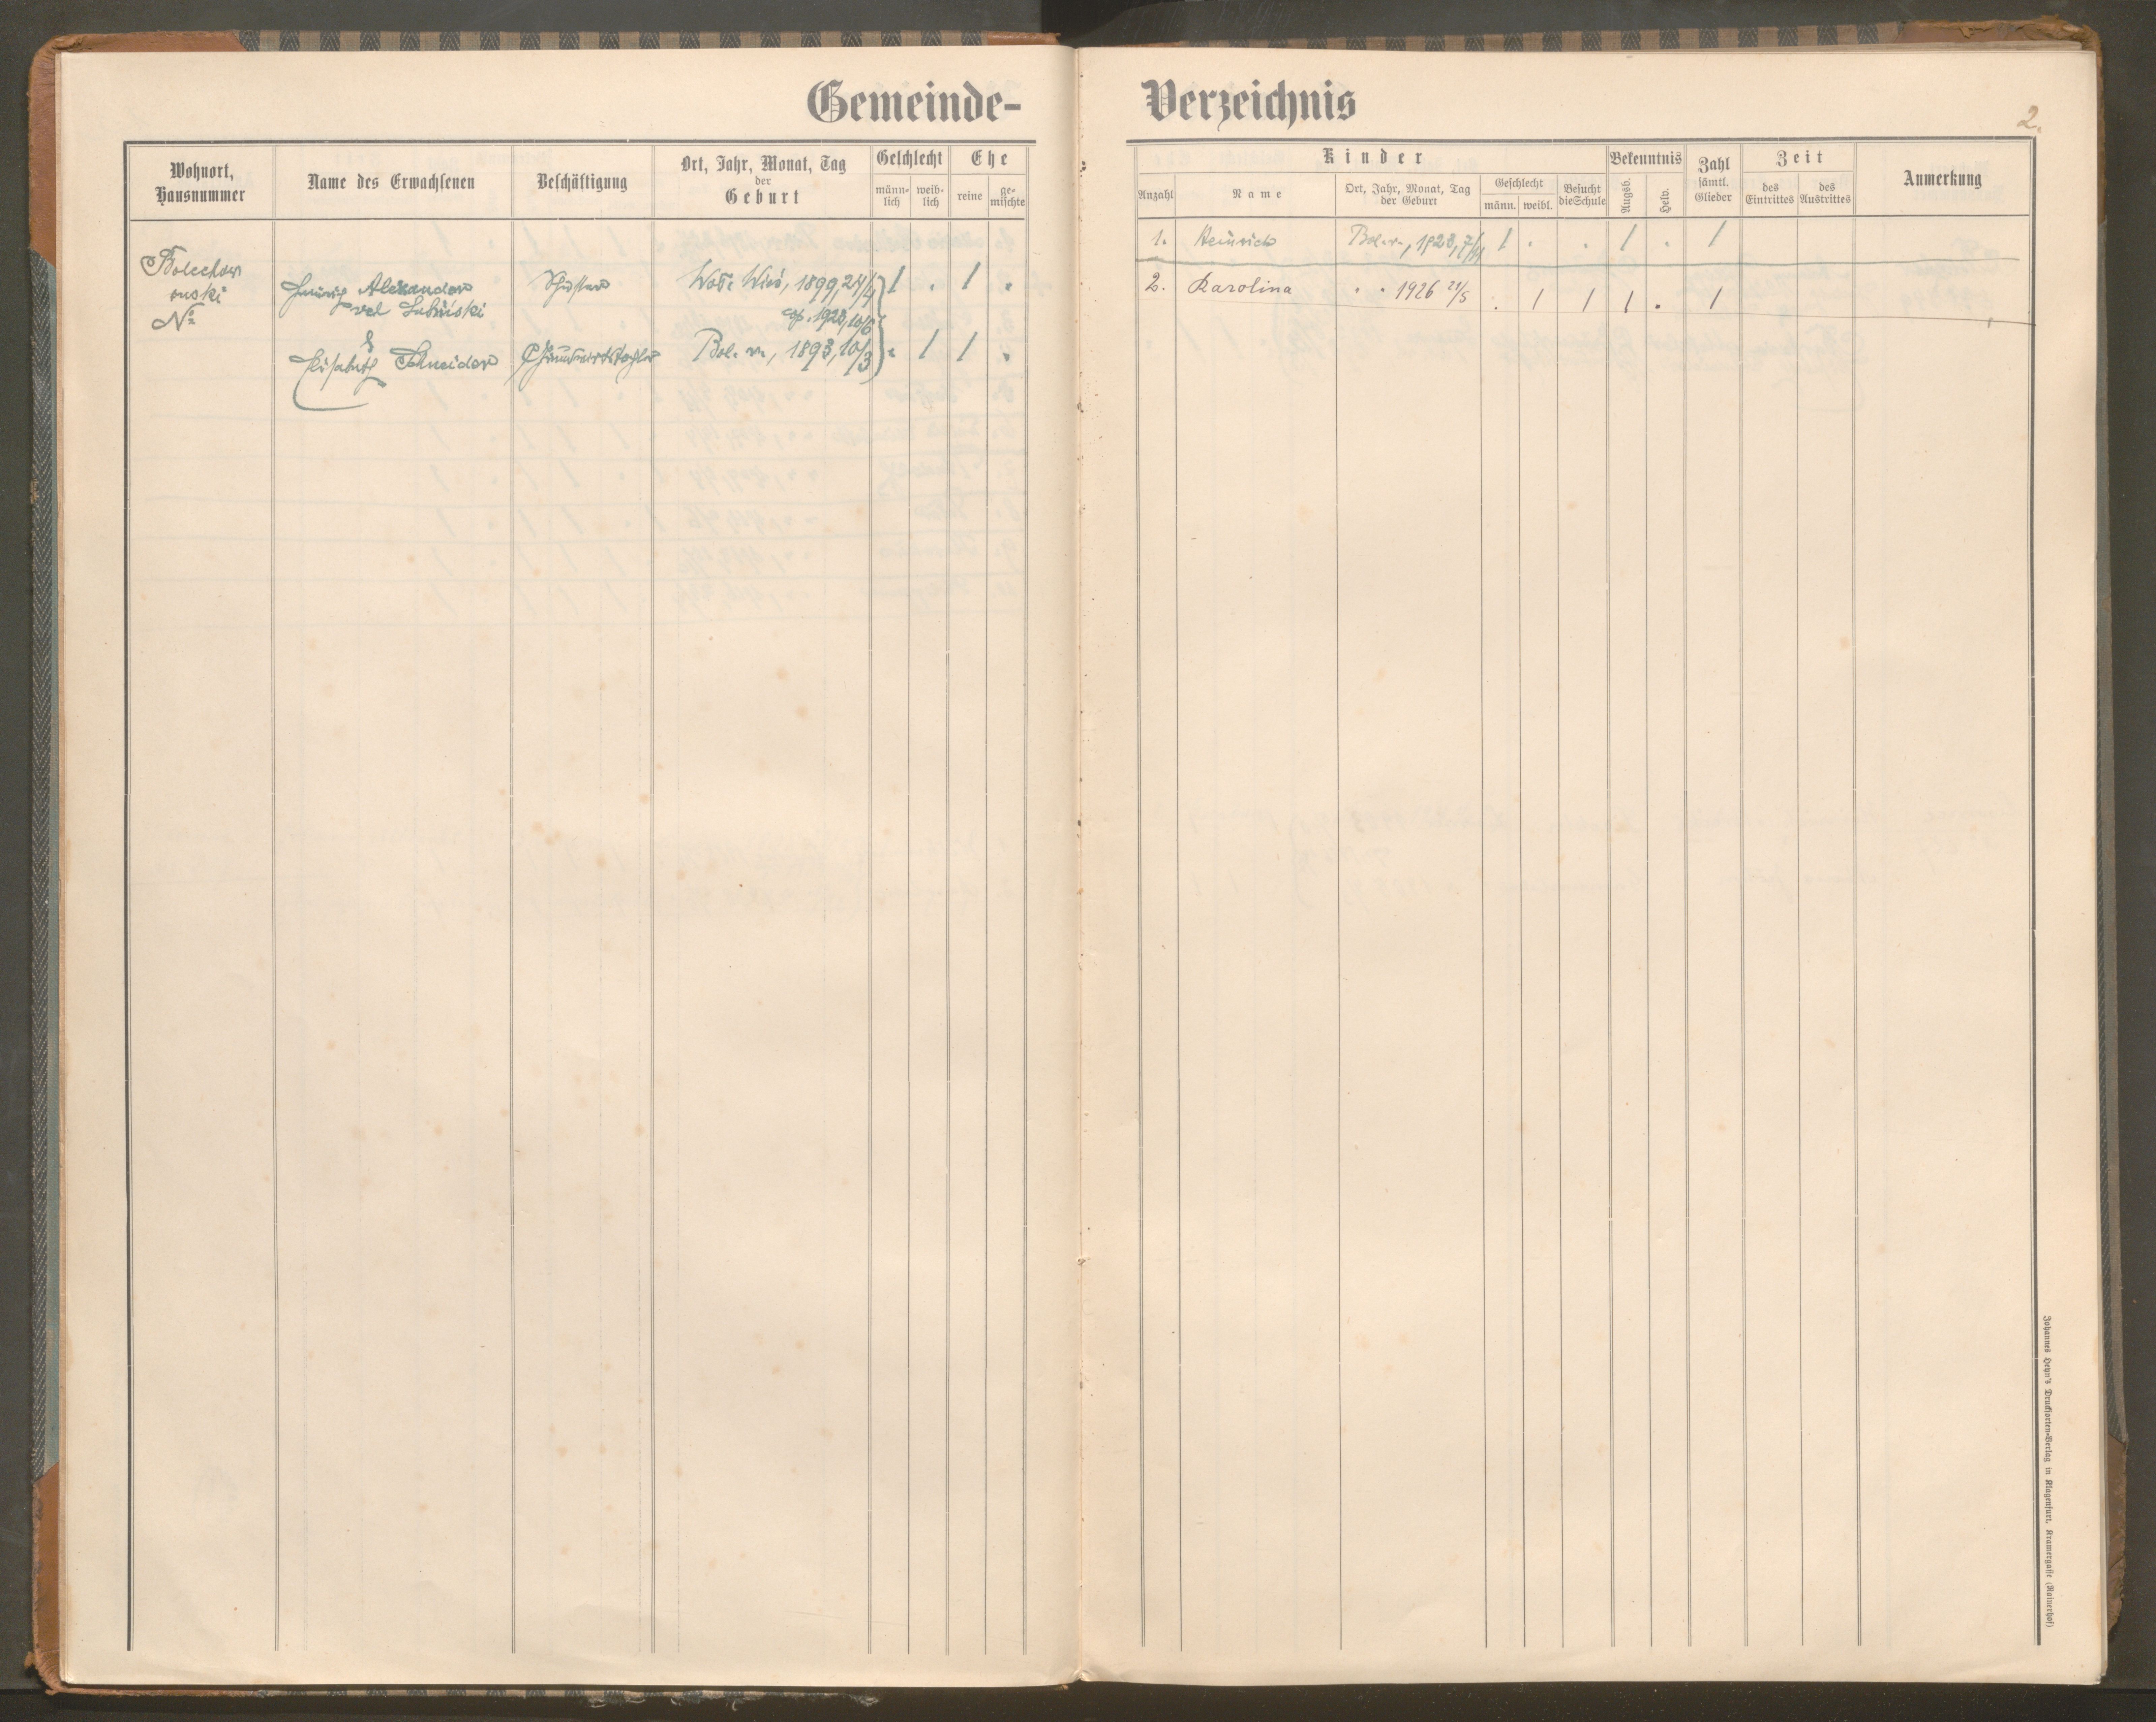 Gemeinde-
Wohnort, Hausnummer
Name des Erwachsenen
Beschäftigung
Ort, Jahr, Monat, Tag der Geburt
Geschlecht
männ-lich
weib-lich
Ehe
reine
ge-mischte
Bolechów
ruski
№
Alexander
vel
Schuster
1899, 24/4
1 . 1 .
1923, 10/6
&
Elisabeth Schneider
Bol. r., 1893, 10/3
. 1 1 .
Verzeichnis
2.
Kinder
Anzahl
Name
Ort, Jahr, Monat, Tag der Geburt
Geschlecht
männ.
weibl.
Besucht die Schule
Bekenntnis
Augsb.
Helv.
Zahl sämtl. Glieder
Zeit
des Eintrittes
des Austrittes
Anmerkung
1. Heinrich Bol. r., 1923, 1 . . 1 . 1
2. Karolina " " 1926 21/5 . 1 1 1 . 1
Johannes Heyn's Drucksorten-Verlag in Klagenfurt, Kramergasse (Rainerhof)